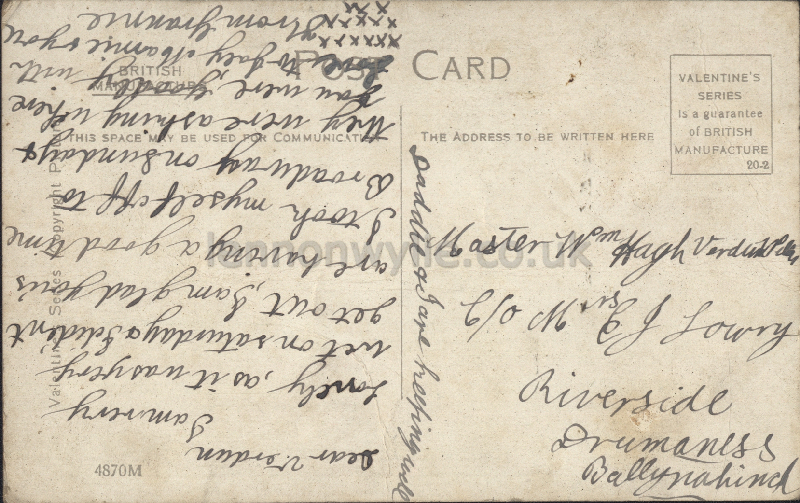 POST CARD
BRITISH
MANUFACTURE
THIS SPACE MAY BE USED FOR COMMUNICATION
THE ADDRESS TO BE WRITTEN HERE
VALENTINE'S
SERIES
is a guarantee
of BRITISH
MANUFACTURE
20-2
Valentine's Series Copyright
4870M
lennonwylie.co.uk
Dear Verdun
I am very
lonely, as it was very
wet on saturday & I dident
get out, I am glad you's
are having a good time
I took myself off to
Broadway on Sunday &
they were asking where
you were,
love to Gaey, Mamie & you
from Grannie
xxxxx
Daddle & I are keeping well
Master Wm Hagh Verdun
C/o Mrs E J Lowry
Riverside
Drumaness
Ballynahinch